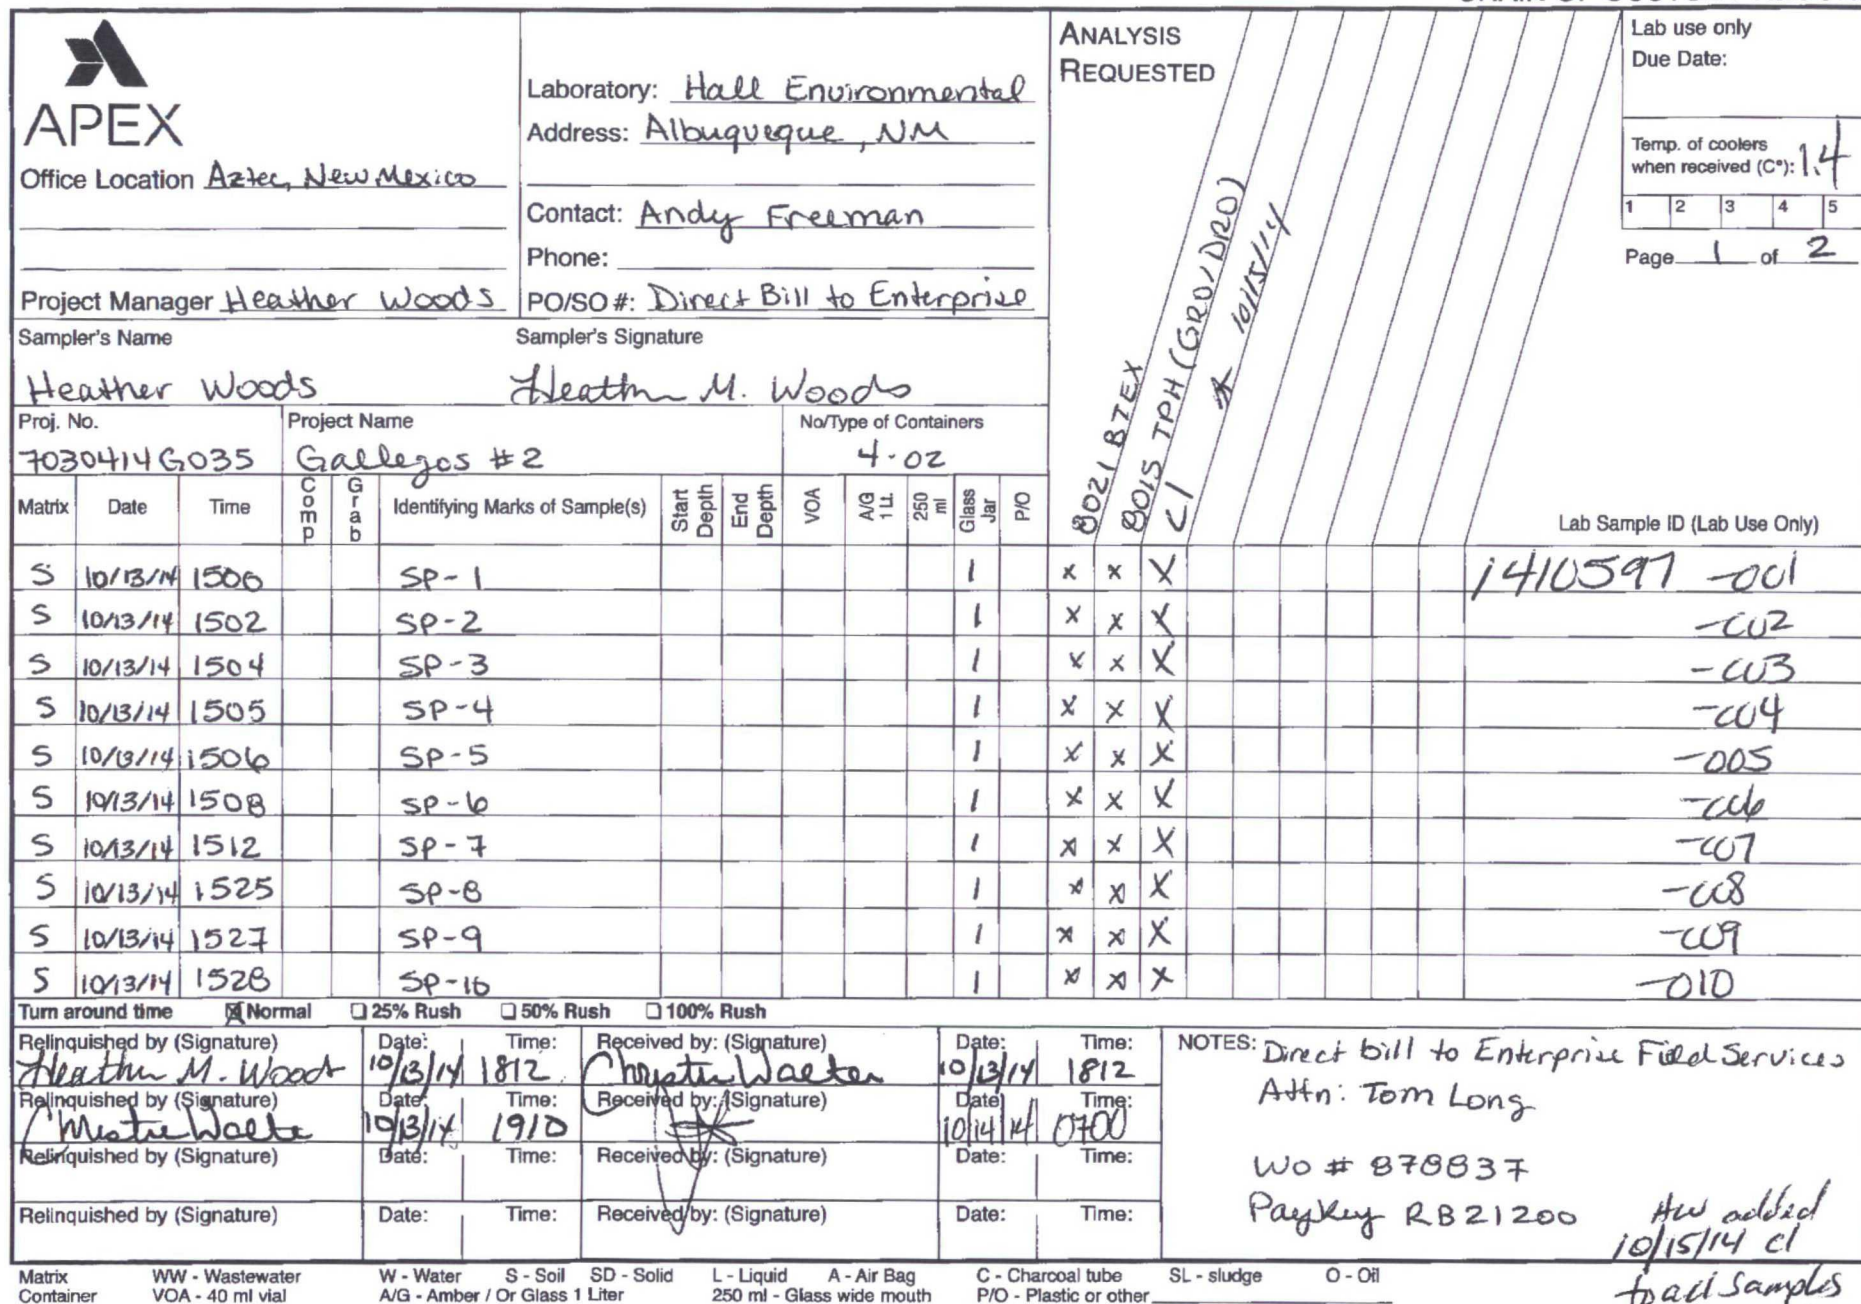 APEX
Office Location Aztec, New Mexico
Project Manager Heather Woods
Laboratory: Hall Environmental
Address: Albuqueque, NM
Contact: Andy Freeman
Phone:
PO/SO #: Direct Bill to Enterprise
ANALYSIS
REQUESTED
8021 BTEX
8015 TPH (GRO/DRO)
Cl * 10/15/14
Lab use only
Due Date:
Temp. of coolers
when received (C°): 1.4
1 2 3 4 5
Page 1 of 2
Sampler's Name Sampler's Signature
Heather Woods Heather M. Woods
Proj. No. Project Name No/Type of Containers
7030414G035 Gallegos #2 4-oz
Matrix Date Time Comp Grab Identifying Marks of Sample(s) Start Depth End Depth VOA A/G 1 Lt. 250 ml Glass Jar P/O Lab Sample ID (Lab Use Only)
S 10/13/14 1500 SP-1 1 x x X 1410597 -001
S 10/13/14 1502 SP-2 1 x x X -002
S 10/13/14 1504 SP-3 1 x x X -003
S 10/13/14 1505 SP-4 1 x x X -004
S 10/13/14 1506 SP-5 1 x x X -005
S 10/13/14 1508 SP-6 1 x x X -006
S 10/13/14 1512 SP-7 1 x x X -007
S 10/13/14 1525 SP-8 1 x x X -008
S 10/13/14 1527 SP-9 1 x x X -009
S 10/13/14 1528 SP-10 1 x x X -010
Turn around time Normal 25% Rush 50% Rush 100% Rush
Relinquished by (Signature) Date: Time: Received by: (Signature) Date: Time:
Heather M. Woods 10/13/14 1812 Christine Waeter 10/13/14 1812
Relinquished by (Signature) Date: Time: Received by: (Signature) Date: Time:
10/13/14 1910 10/14/14 0700
Relinquished by (Signature) Date: Time: Received by: (Signature) Date: Time:
Relinquished by (Signature) Date: Time: Received by: (Signature) Date: Time:
NOTES: Direct bill to Enterprise Field Services
Attn: Tom Long
WO # 878837
PayKey RB21200
HW added
10/15/14 Cl
to all samples
Matrix WW - Wastewater W - Water S - Soil SD - Solid L - Liquid A - Air Bag C - Charcoal tube SL - sludge O - Oil
Container VOA - 40 ml vial A/G - Amber / Or Glass 1 Liter 250 ml - Glass wide mouth P/O - Plastic or other